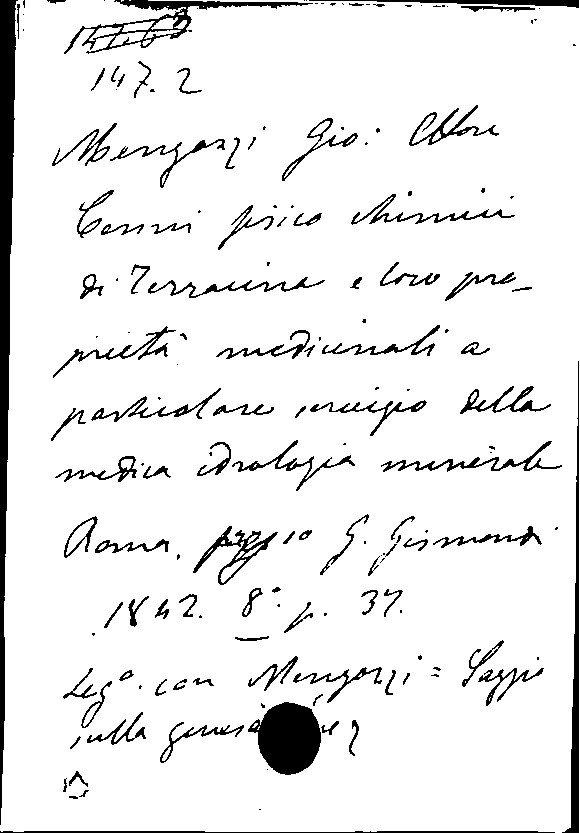 147.63
147.2
Mengozzi Gio: Ettore
Cenni fisico chimici
di Terracina e loro pro-
prietà medicinali a
particolare servigio della
medica idrologia minerale
Roma, presso G. Gismondi
1842. 8° p. 37.
Leg° con Mengozzi = Saggio
sulla genesi